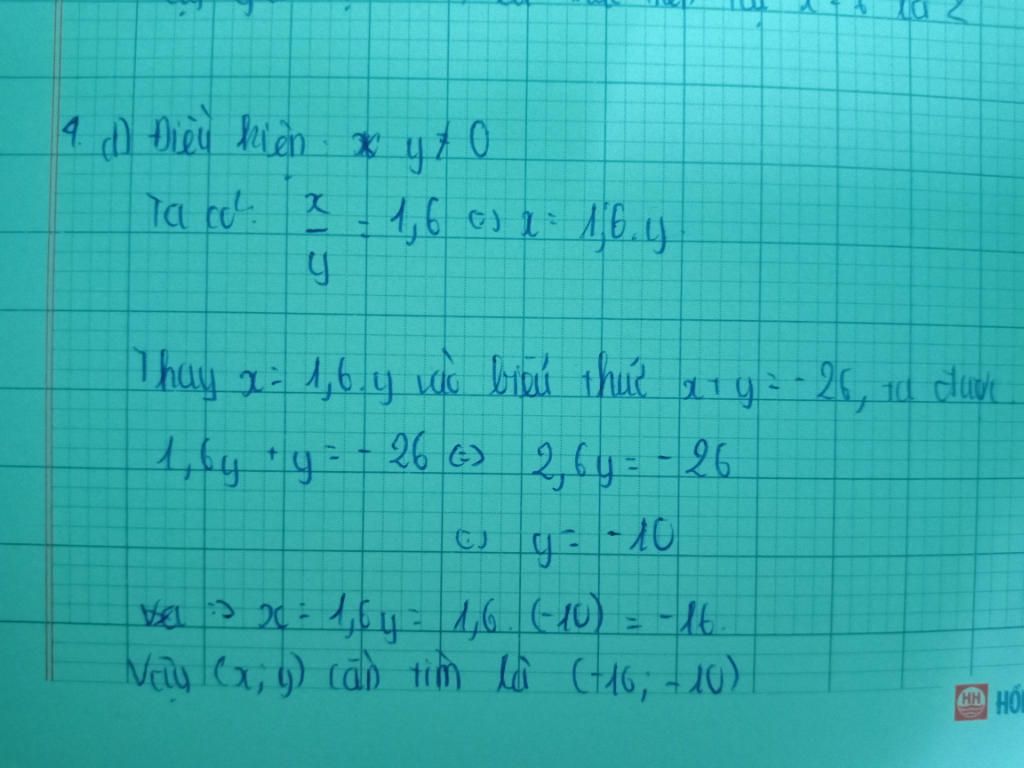 4. d) Điều kiện: y ≠ 0
Ta có: x/y = 1,6 <=> x = 1,6.y
Thay x = 1,6.y vào biểu thức x + y = - 26, ta được
1,6y + y = - 26 <=> 2,6y = - 26
<=> y = -10
=> x = 1,6y = 1,6. (-10) = -16.
Vậy (x; y) cần tìm là (-16; -10)
HH